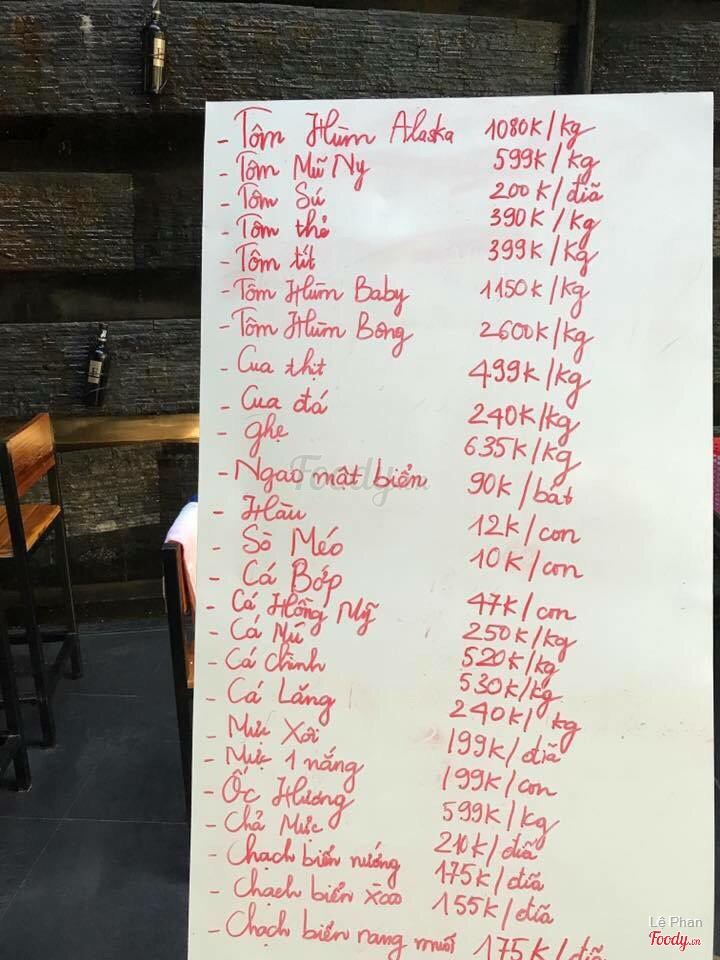 - Tôm Hùm Alaska 1080K/kg
- Tôm Mũ Ny 599K/kg
- Tôm Sú 200K/điã
- Tôm thẻ 390K/kg
- Tôm tít 399K/kg
- Tôm Hùm Baby 1150K/kg
- Tôm Hùm Bông 2600K/kg
- Cua thịt 499K/kg
- Cua đá 240K/kg
- ghẹ 635K/kg
- Ngao mật biển 90K/bát
- Hàu 12K/con
- Sò Méo 10K/con
- Cá Bớp 47K/con
- Cá Hồng Mỹ 250K/kg
- Cá Mú 520K/kg
- Cá Chình 530K/kg
- Cá Lăng 240K/kg
- Mực Xơi 199K/điã
- Mực 1 nắng 199K/con
- Ốc Hương 599K/kg
- Chả Mực 210K/điã
- Chạch biển nướng 175K/điã
- Chạch biển xào 155K/điã
- Chạch biển rang muối 175K/điã
Foody.vn
Lệ Phan
Foody.vn